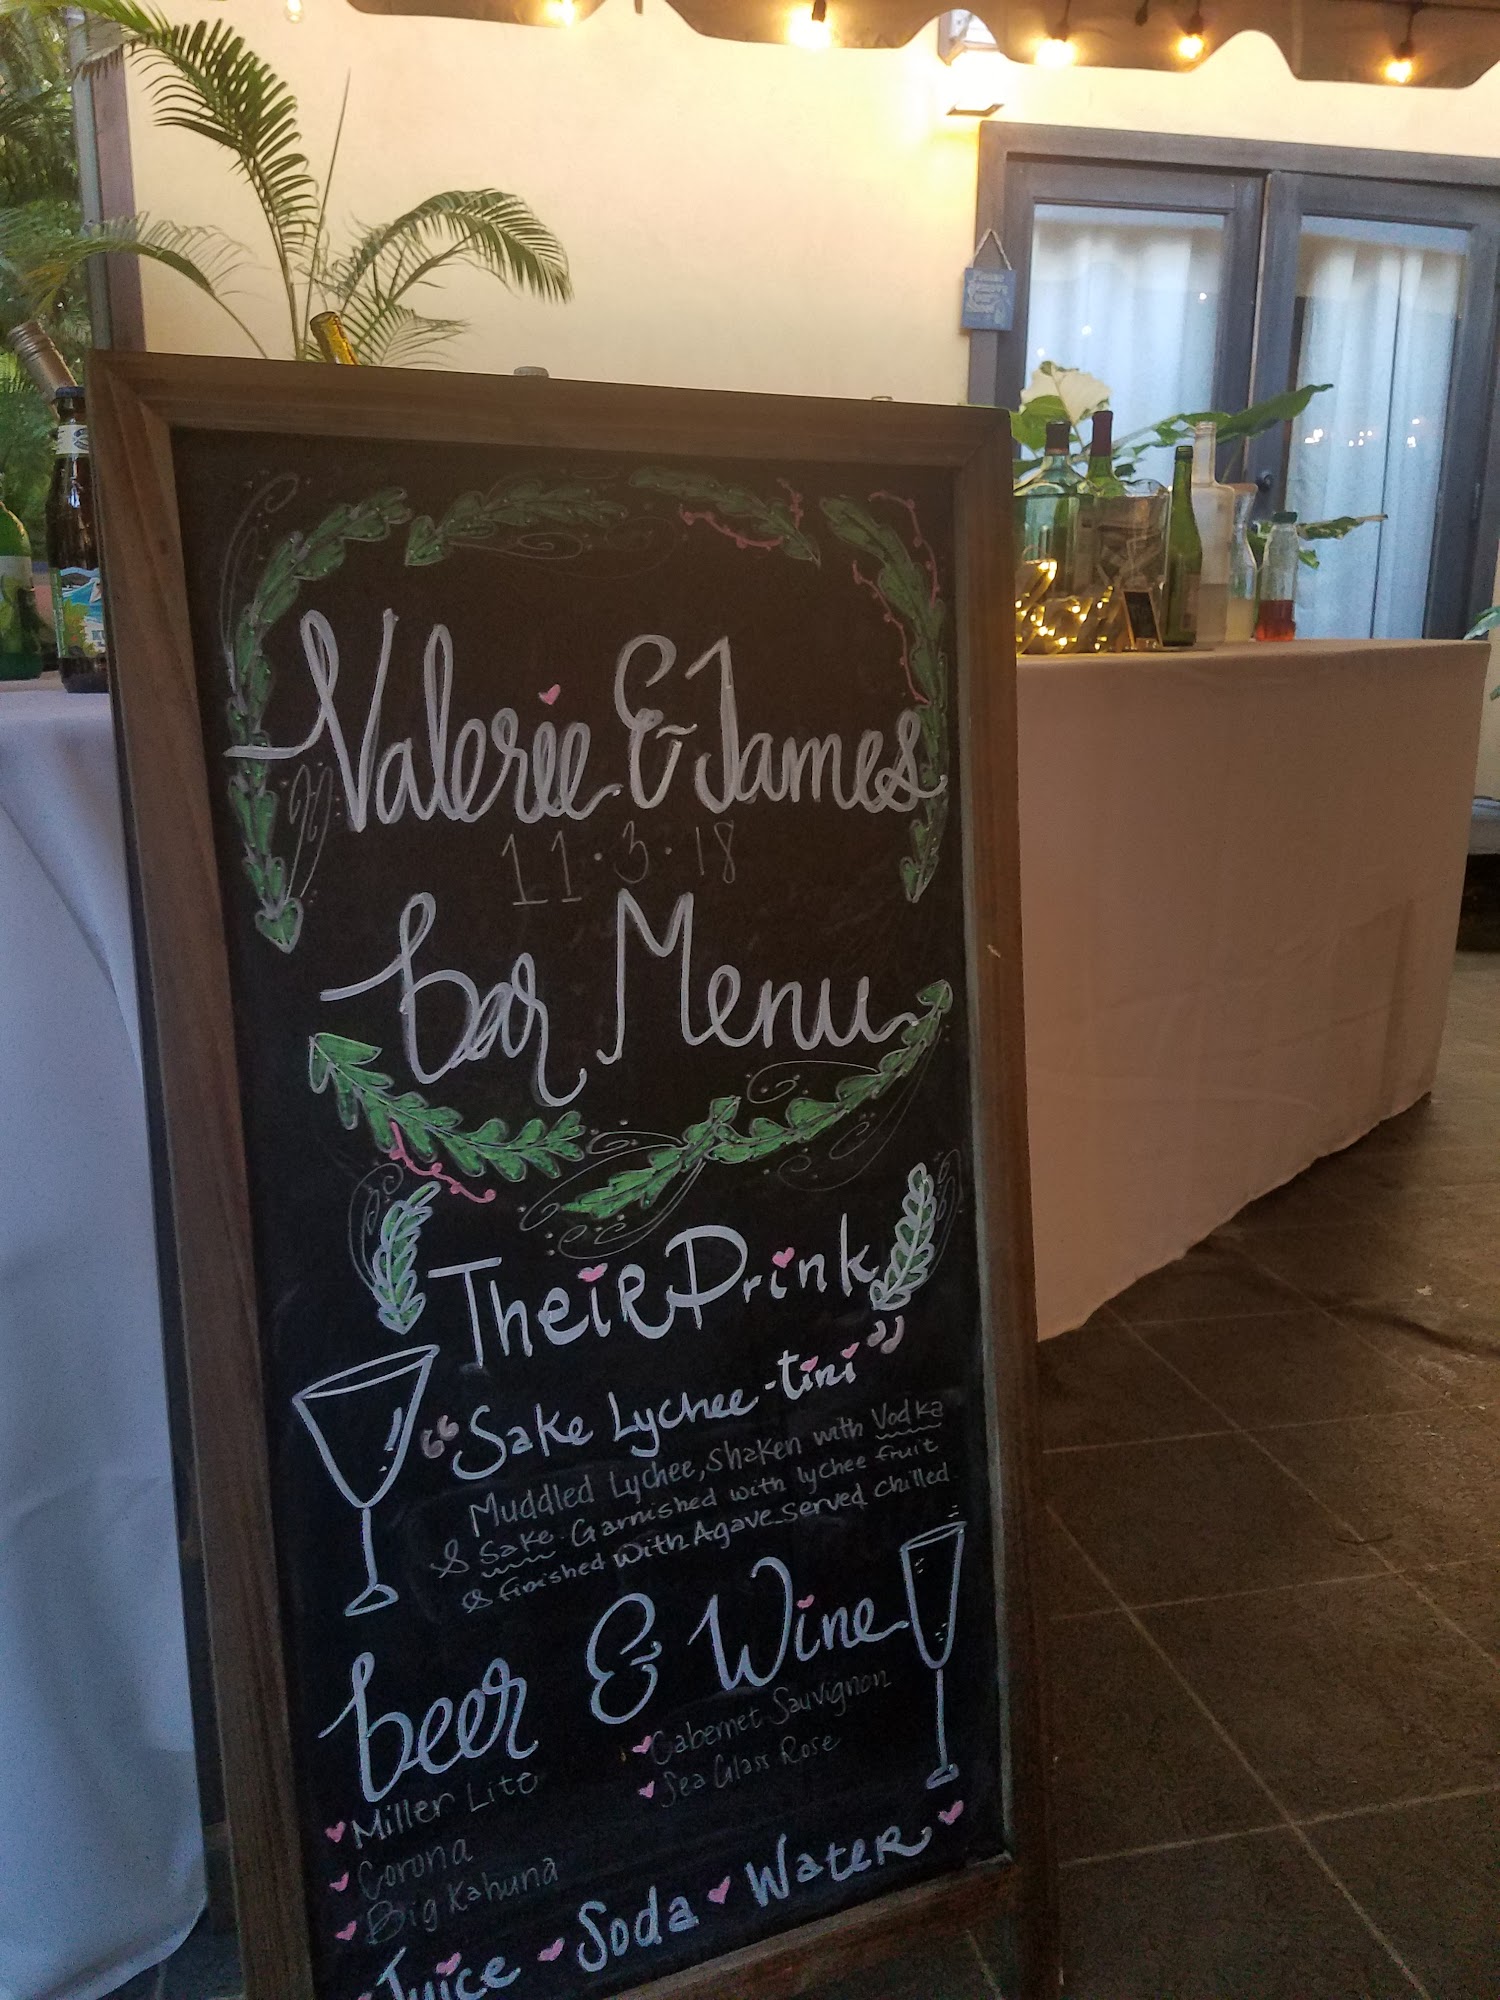 Valerie & James
11.3.18
bar Menu
Their Drink
"Sake Lychee-tini"
Muddled Lychee, Shaken with Vodka
& Sake. Garnished with lychee fruit
& finished with Agave. Served chilled.
beer & Wine
Miller Lite
Corona
Big Kahuna
Cabernet Sauvignon
Sea Glass Rose
Juice Soda Water
Please
Remove
Your